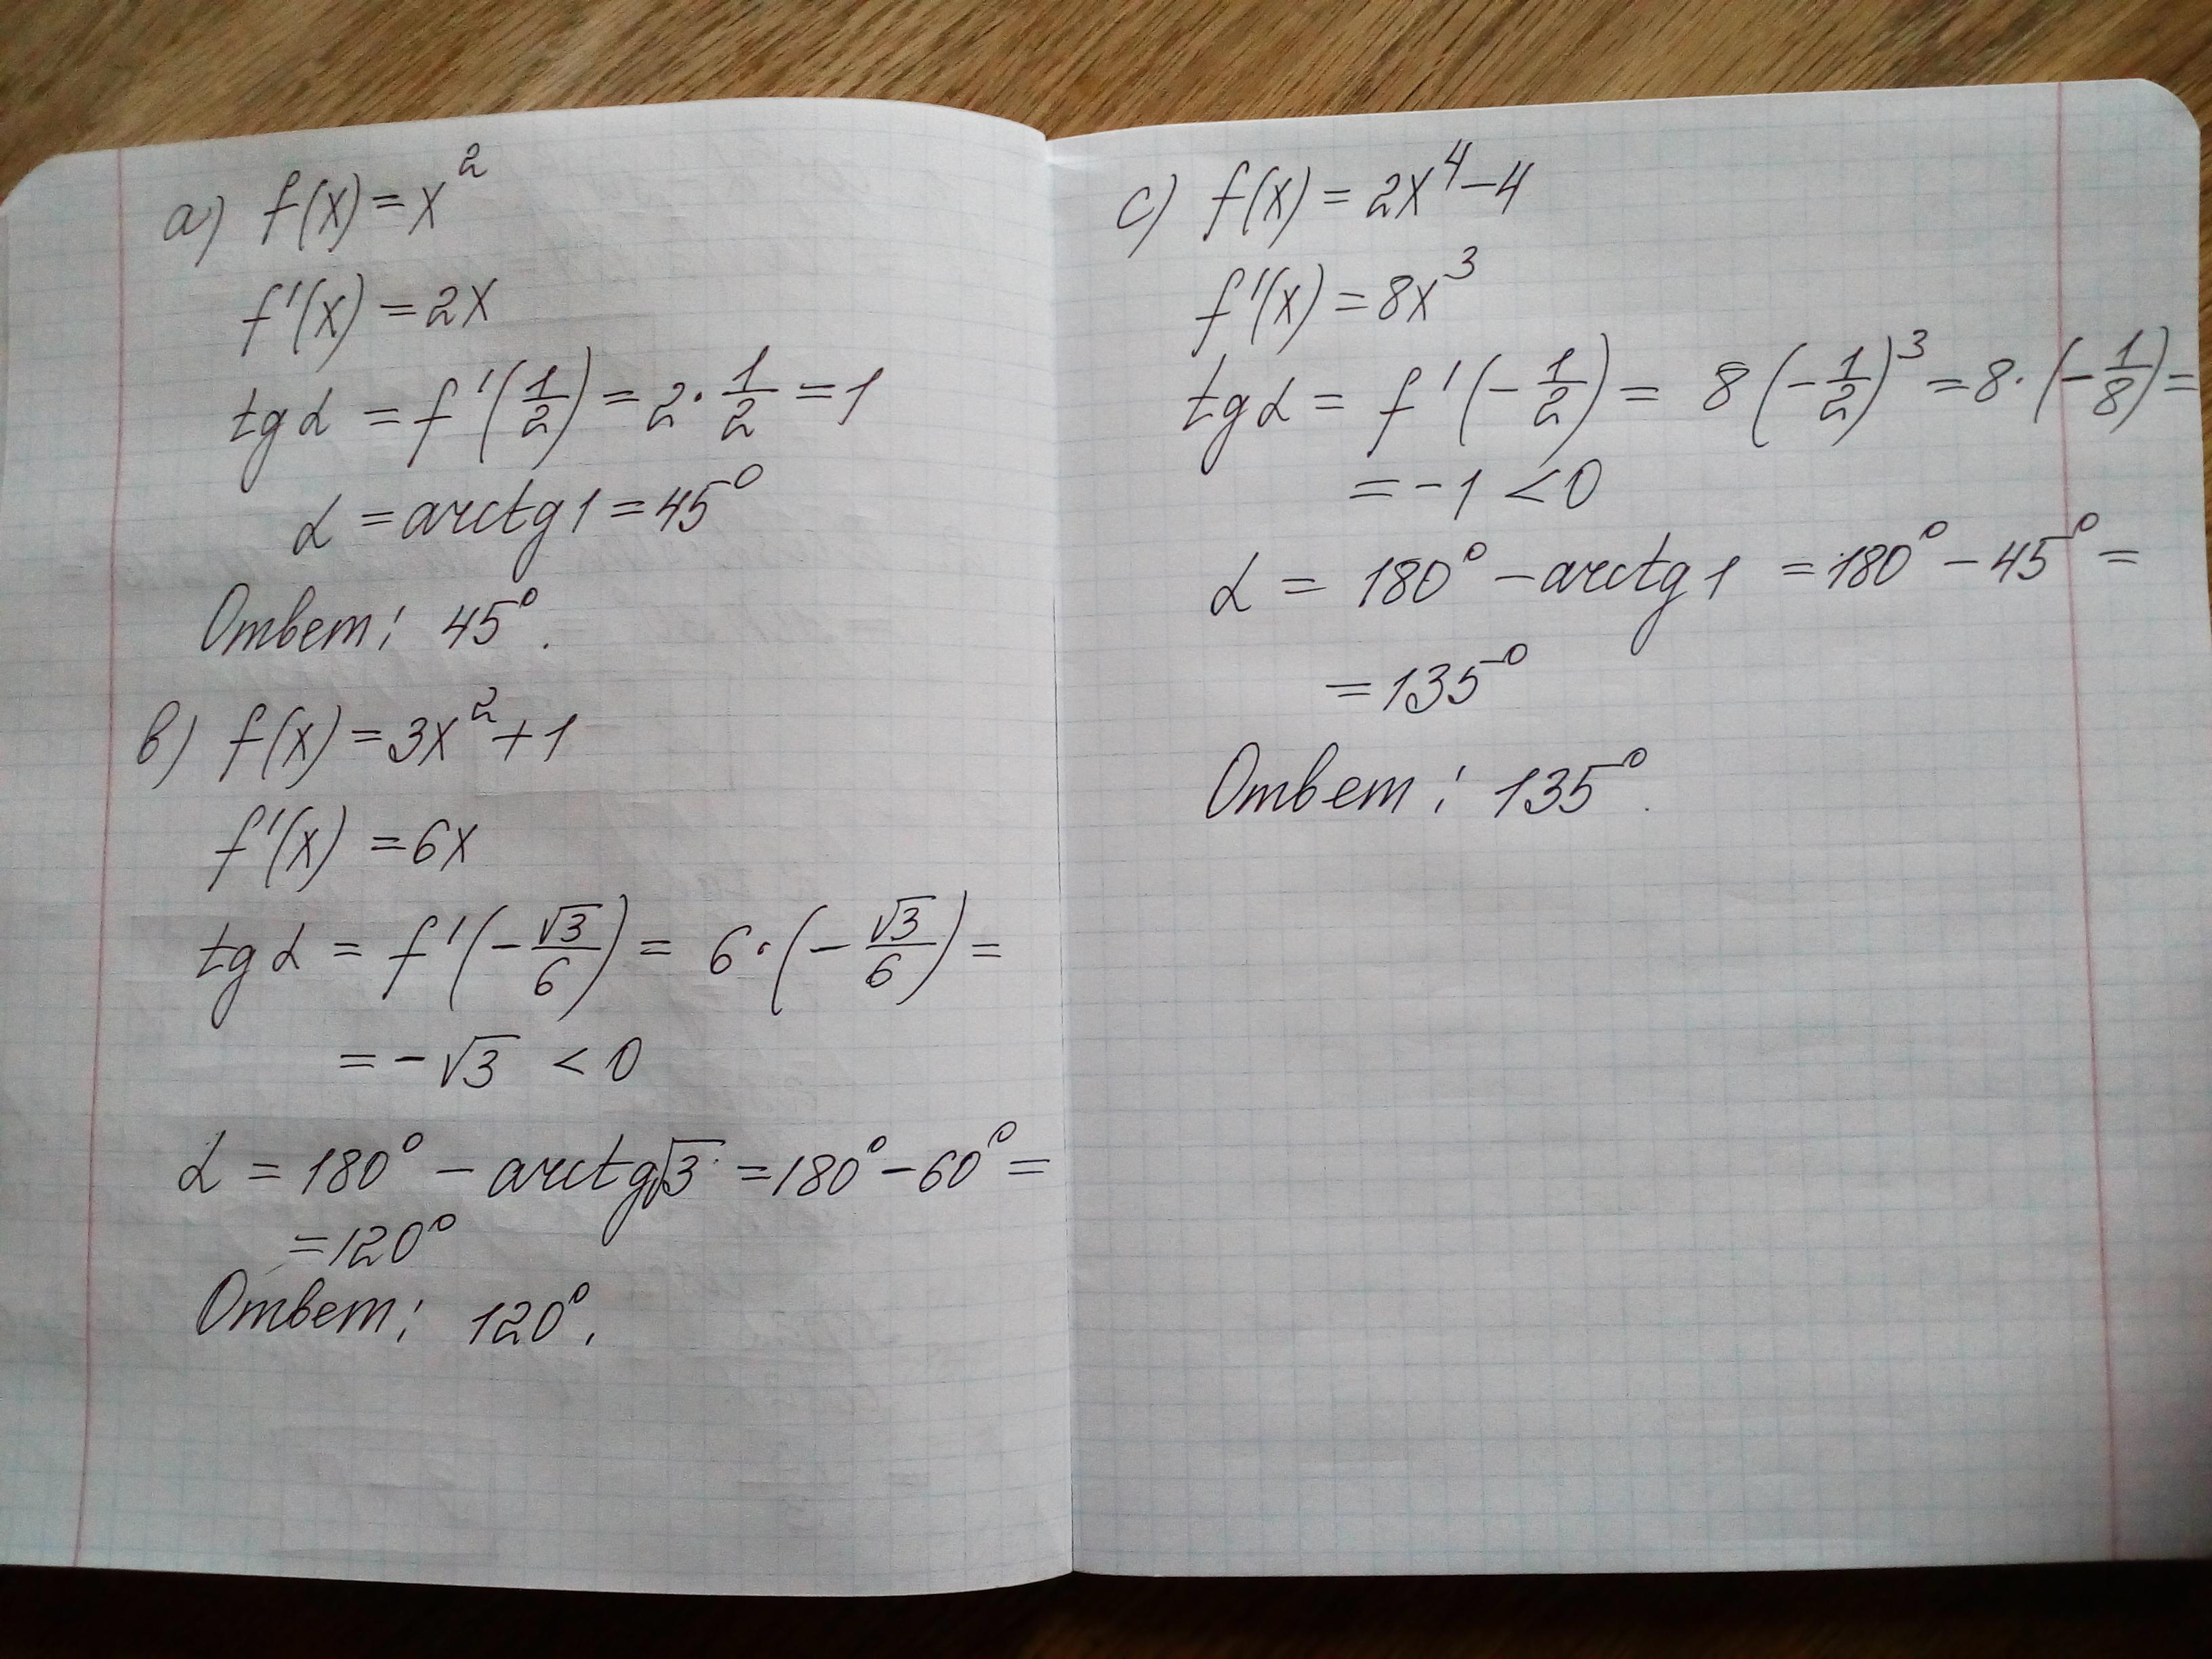 а) f(x) = x²
f'(x) = 2x
tg α = f'(1/2) = 2 · 1/2 = 1
α = arctg 1 = 45°
Ответ: 45°.
в) f(x) = 3x² + 1
f'(x) = 6x
tg α = f'(-√3/6) = 6 · (-√3/6) =
= -√3 < 0
α = 180° - arctg√3 = 180° - 60° =
= 120°
Ответ: 120°.
с) f(x) = 2x⁴ - 4
f'(x) = 8x³
tg α = f'(-1/2) = 8(-1/2)³ = 8 · (-1/8) =
= -1 < 0
α = 180° - arctg 1 = 180° - 45° =
= 135°
Ответ: 135°.